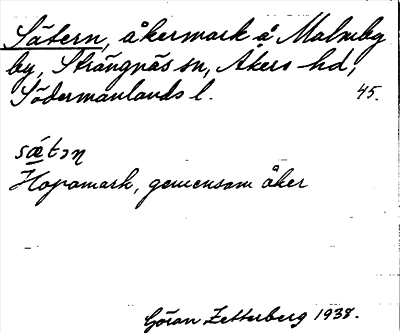 Sätern, åkermark å Malmby
by, Strängnäs sn, Åkers hd,
Södermanlands l. 45.
sǽtən
Hopamark, gemensam åker
Göran Zetterberg 1938.